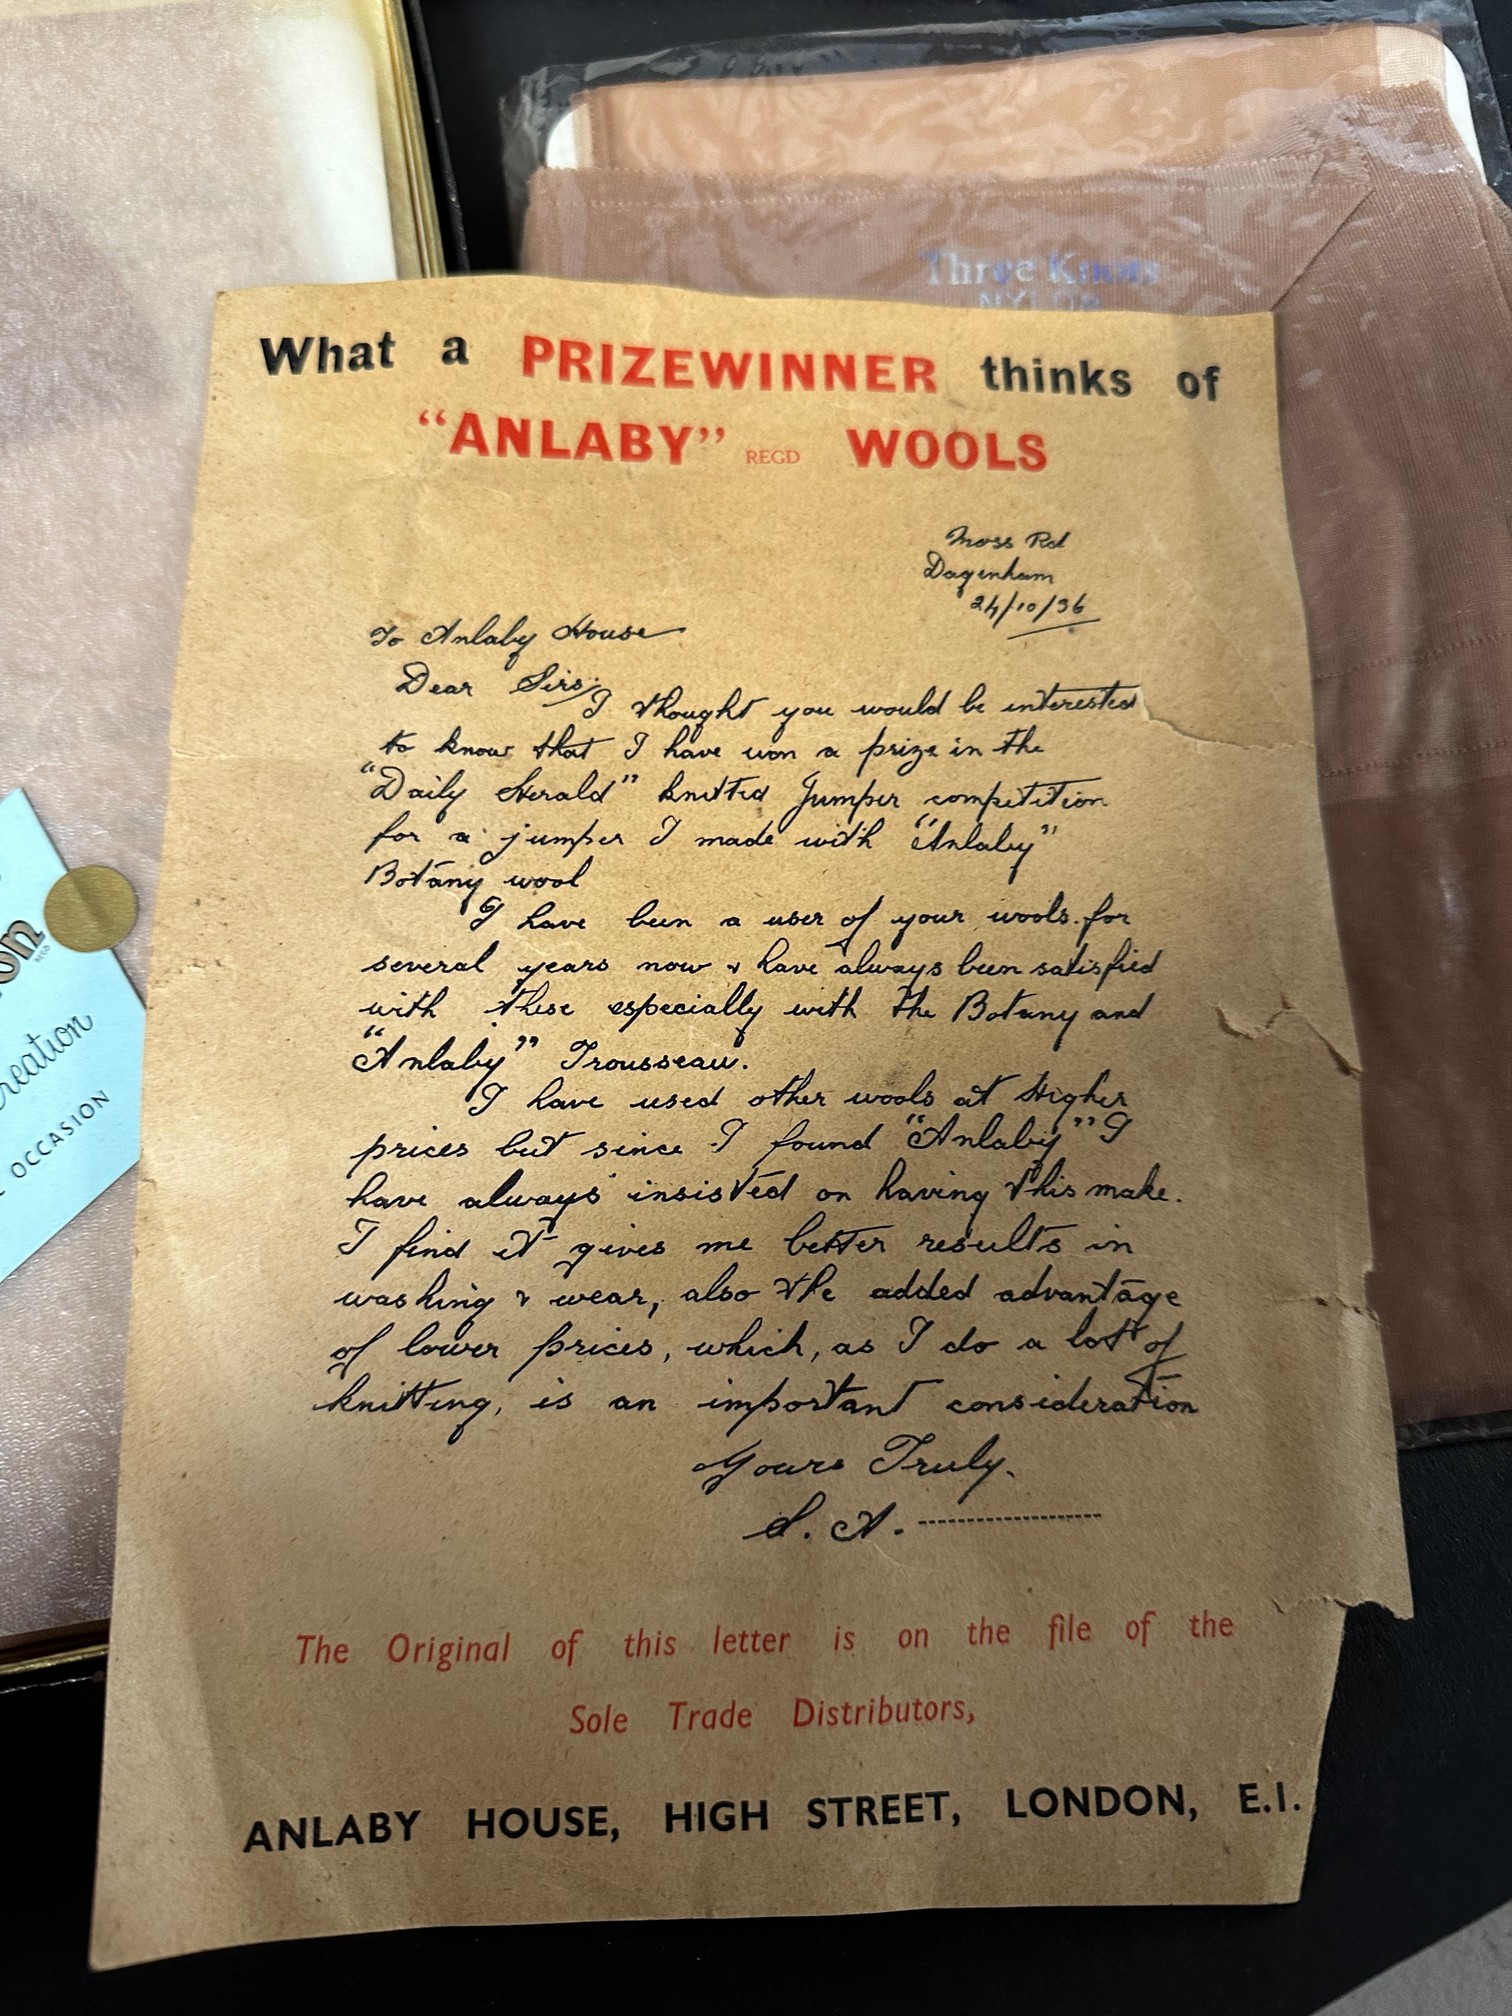 Three Knots
NYLON
What a PRIZEWINNER thinks of
“ANLABY” REGD WOOLS
Moss Rd
Dagenham
24/10/36
To Anlaby House
Dear Sirs,
I thought you would be interested
to know that I have won a prize in the
“Daily Herald” knitted Jumper competition
for a jumper I made with “Anlaby”
Botany wool
I have been a user of your wools for
several years now & have always been satisfied
with these especially with the Botany and
“Anlaby” Trousseau.
I have used other wools at Higher
prices but since I found “Anlaby” I
have always insisted on having this make.
I find it gives me better results in
washing & wear, also the added advantage
of lower prices, which, as I do a lot of
knitting, is an important consideration
Yours Truly.
S. A. --------------------
The Original of this letter is on the file of the
Sole Trade Distributors,
ANLABY HOUSE, HIGH STREET, LONDON, E.1.
on
REGD
reation
OCCASION